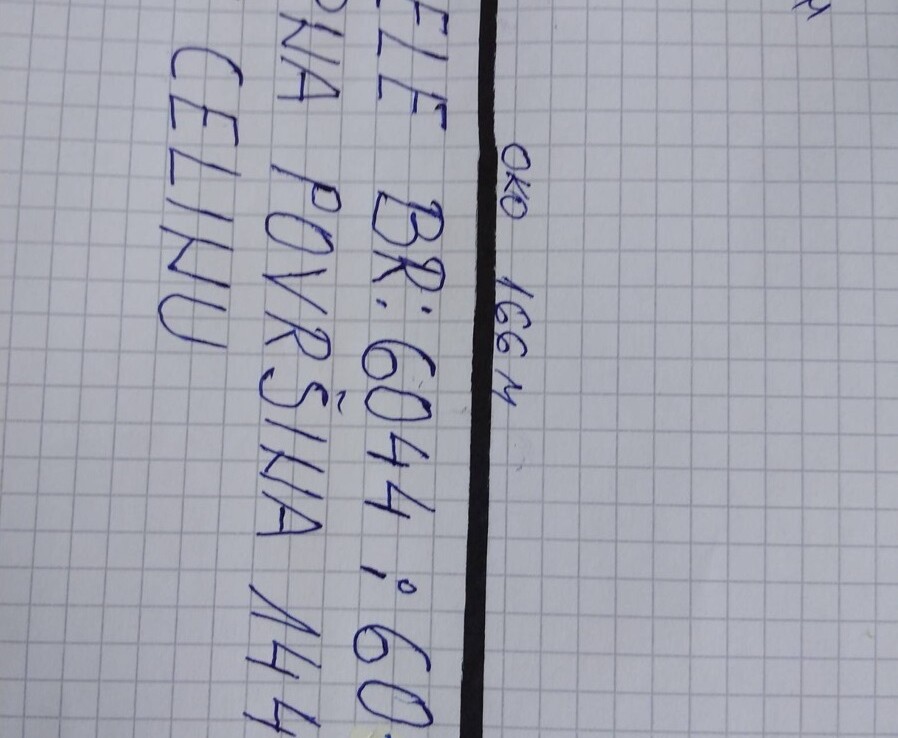 OKO 166 M
ELE BR: 6044 i 60
NA POVRŠINA 144
CELINU